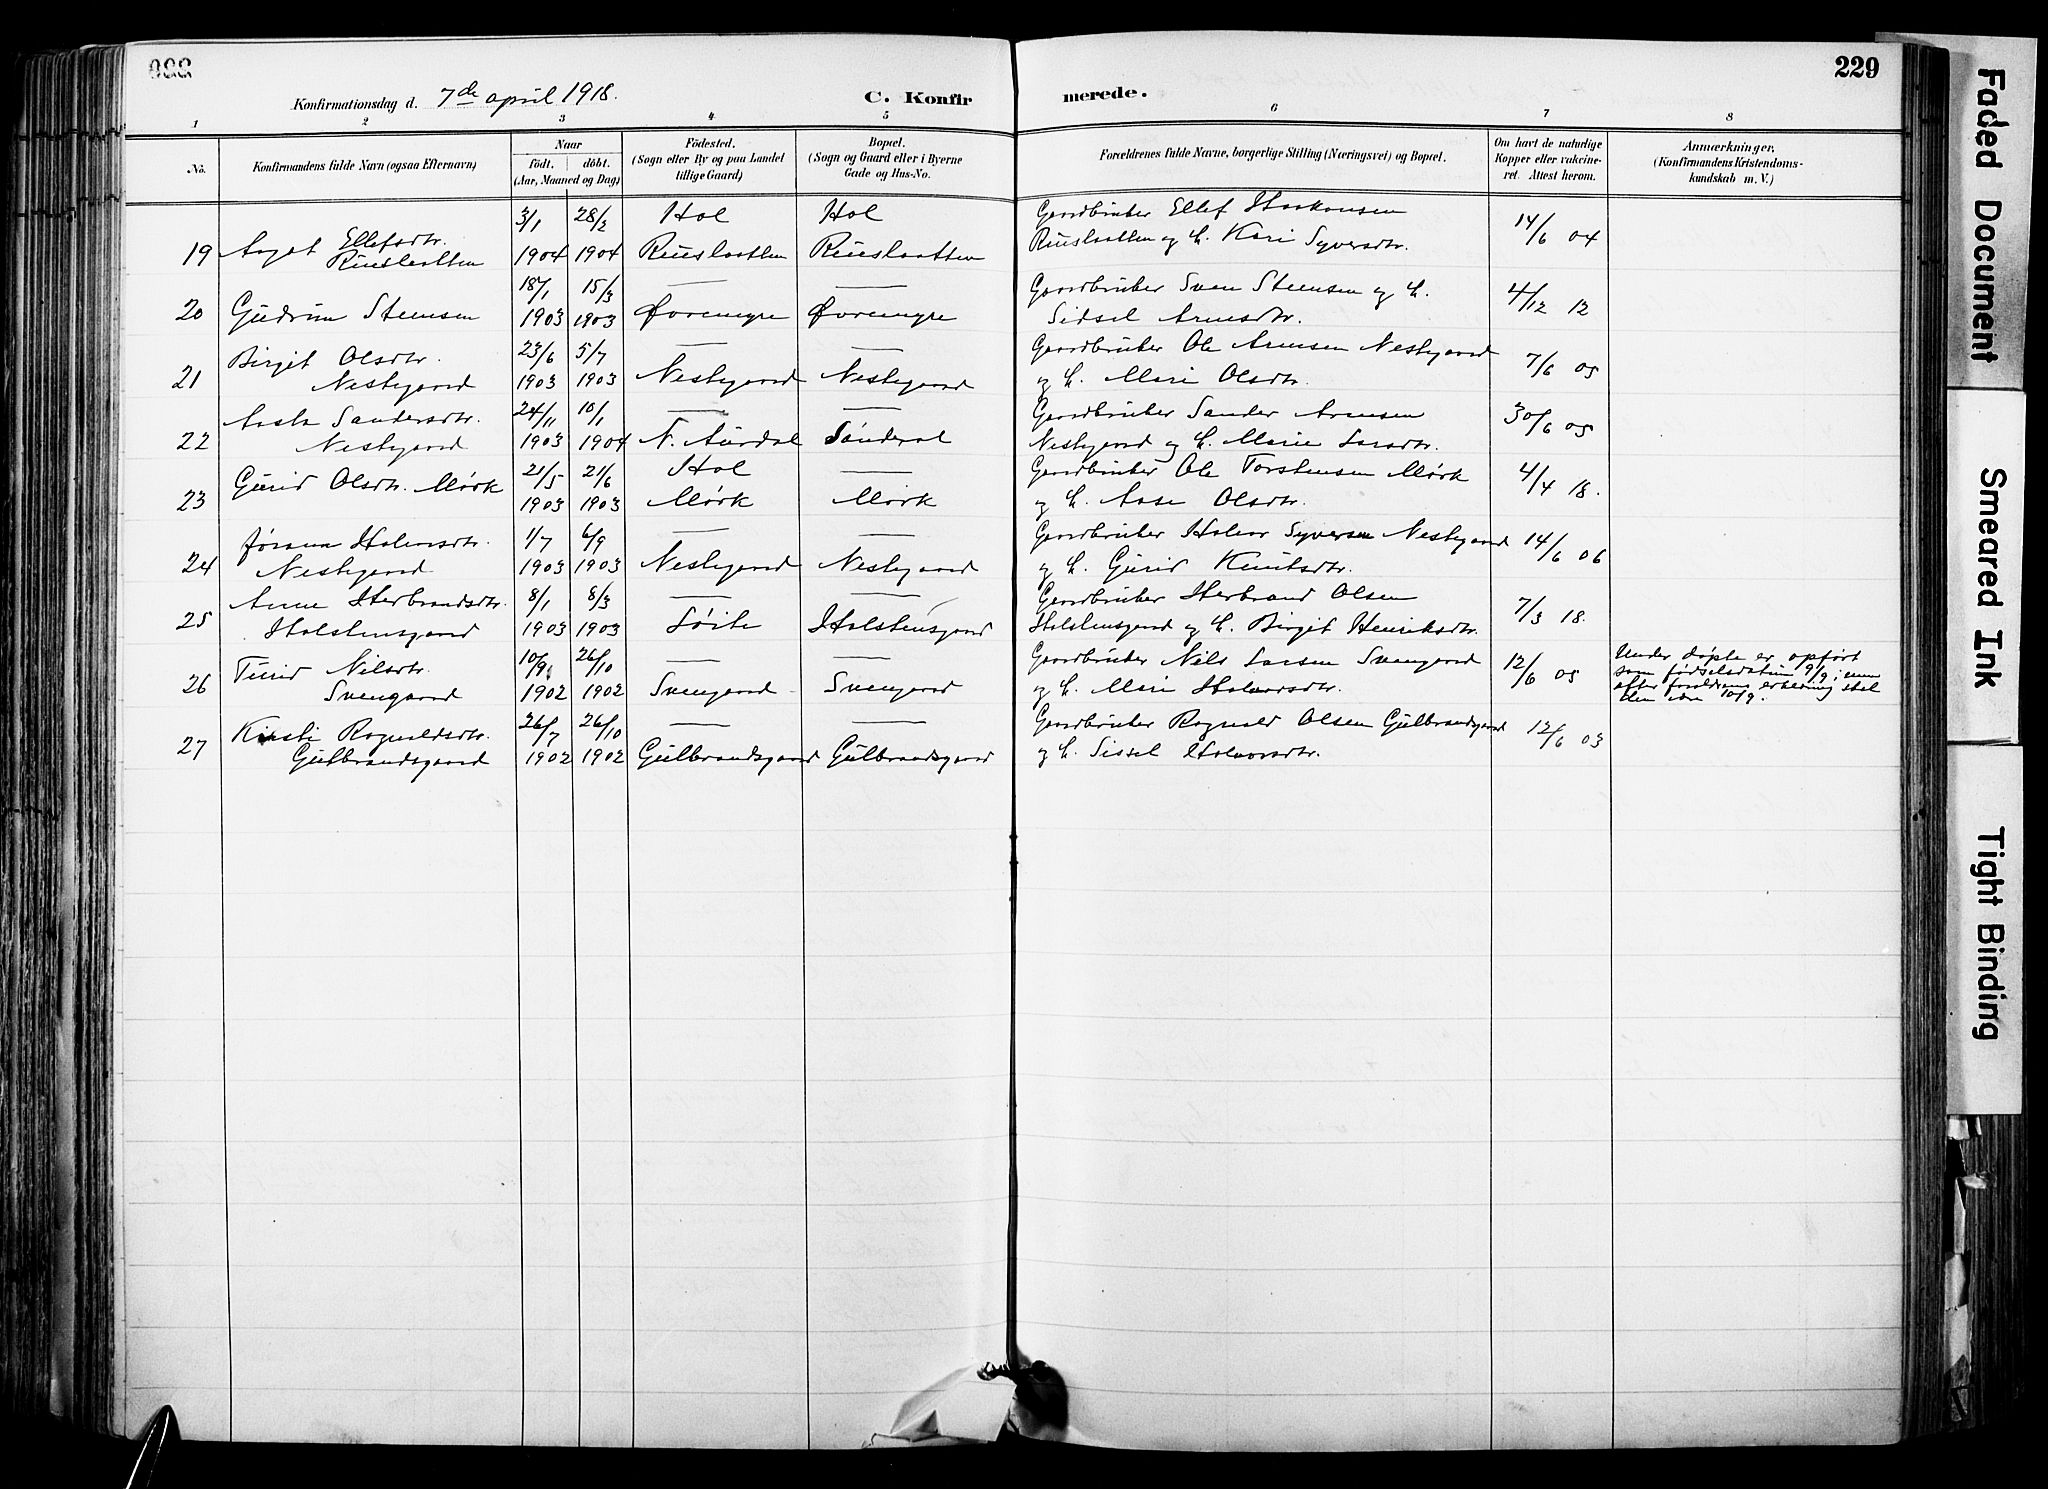 229
Konfirmationsdag d. 7de april 1918.
C. Konfirmerede.
1 2 3 4 5 6 7 8
No.
Konfirmandens fulde Navn (ogsaa Efternavn)
Naar
födt. döbt.
(Aar, Maaned og Dag)
Födested.
(Sogn eller By og paa Landet
tillige Gaard)
Bopæl.
(Sogn og Gaard eller i Byerne
Gade og Hus-No.
Forældrenes fulde Navne, borgerlige Stilling (Næringsvei) og Bopæl.
Om havt de naturlige
Kopper eller vakcine-
ret. Attest herom.
Anmærkninger,
(Konfirmandens Kristendoms-
kundskab m. V.)
Ellefsdtr. 3/1 28/2 Hol Hol Gaardbruker Ellef Haakonsen 14/6 04
19 Ruuslaatten 1904 1904 Ruuslaatten Ruuslaatten Ruuslaatten og h. Kari Syversdtr.
18/1 15/3 — — Gaardbruker Sven Steensen og h. 4/12 12
20 Gudrun Steensen 1903 1903 Øvremyre Øvremyre Sidsel Arnesdtr.
Birgit Olsdtr. 23/6 5/7 — — Gaardbruker Ole Arnesen Nestegaard 7/6 05
21 Nestegaard 1903 1903 Nestegaard Nestegaard og h. Mari Olsdtr.
Aasta Sandersdtr. 24/11 10/1 — — Gaardbruker Sander Arnesen 30/6 05
22 Nestegaard 1903 1904 N. Aurdal Sönderal Nestegaard og h. Marie Larsdtr.
Gurid Olsdtr. Mørk 21/5 21/6 Hol — Gaardbruker Ole Torstensen Mørk 4/4 18.
23 1903 1903 Mørk Mørk og h. Aase Olsdtr.
Jørann Halvorsdtr. 1/7 6/9 — — Gaardbruker Halvor Syversen Nestegaard 14/6 06
24 Nestegaard 1903 1903 Nestegaard Nestegaard og h. Gurid Knutsdtr.
Anne Herbrandsdtr. 8/1 8/3 — — Gaardbruker Herbrand Olsen 7/3 18.
25 Holstensgaard 1903 1903 Holstensgaard Holstensgaard og h. Birgit Henriksdtr.
Turid Nilsdtr. 10/9 26/10 — — Gaardbruker Nils Larsen Svengaard 12/6 05
26 Svengaard 1902 1902 Svengaard Svengaard og h. Mari Halvorsdtr.
Under døpte er opført
som fødselsdatum 9/9; men
efter forældrenes erklæring skal
den være 10/9.
Kirsti Ragnvaldsdtr. 26/7 26/10 — — Gaardbruker Ragnvald Olsen Gulbrandsgaard 12/6 03
27 Gulbrandsgaard 1902 1902 Gulbrandsgaard Gulbrandsgaard og h. Sissel Halvorsdtr.
Faded Document
Smeared Ink
Tight Binding